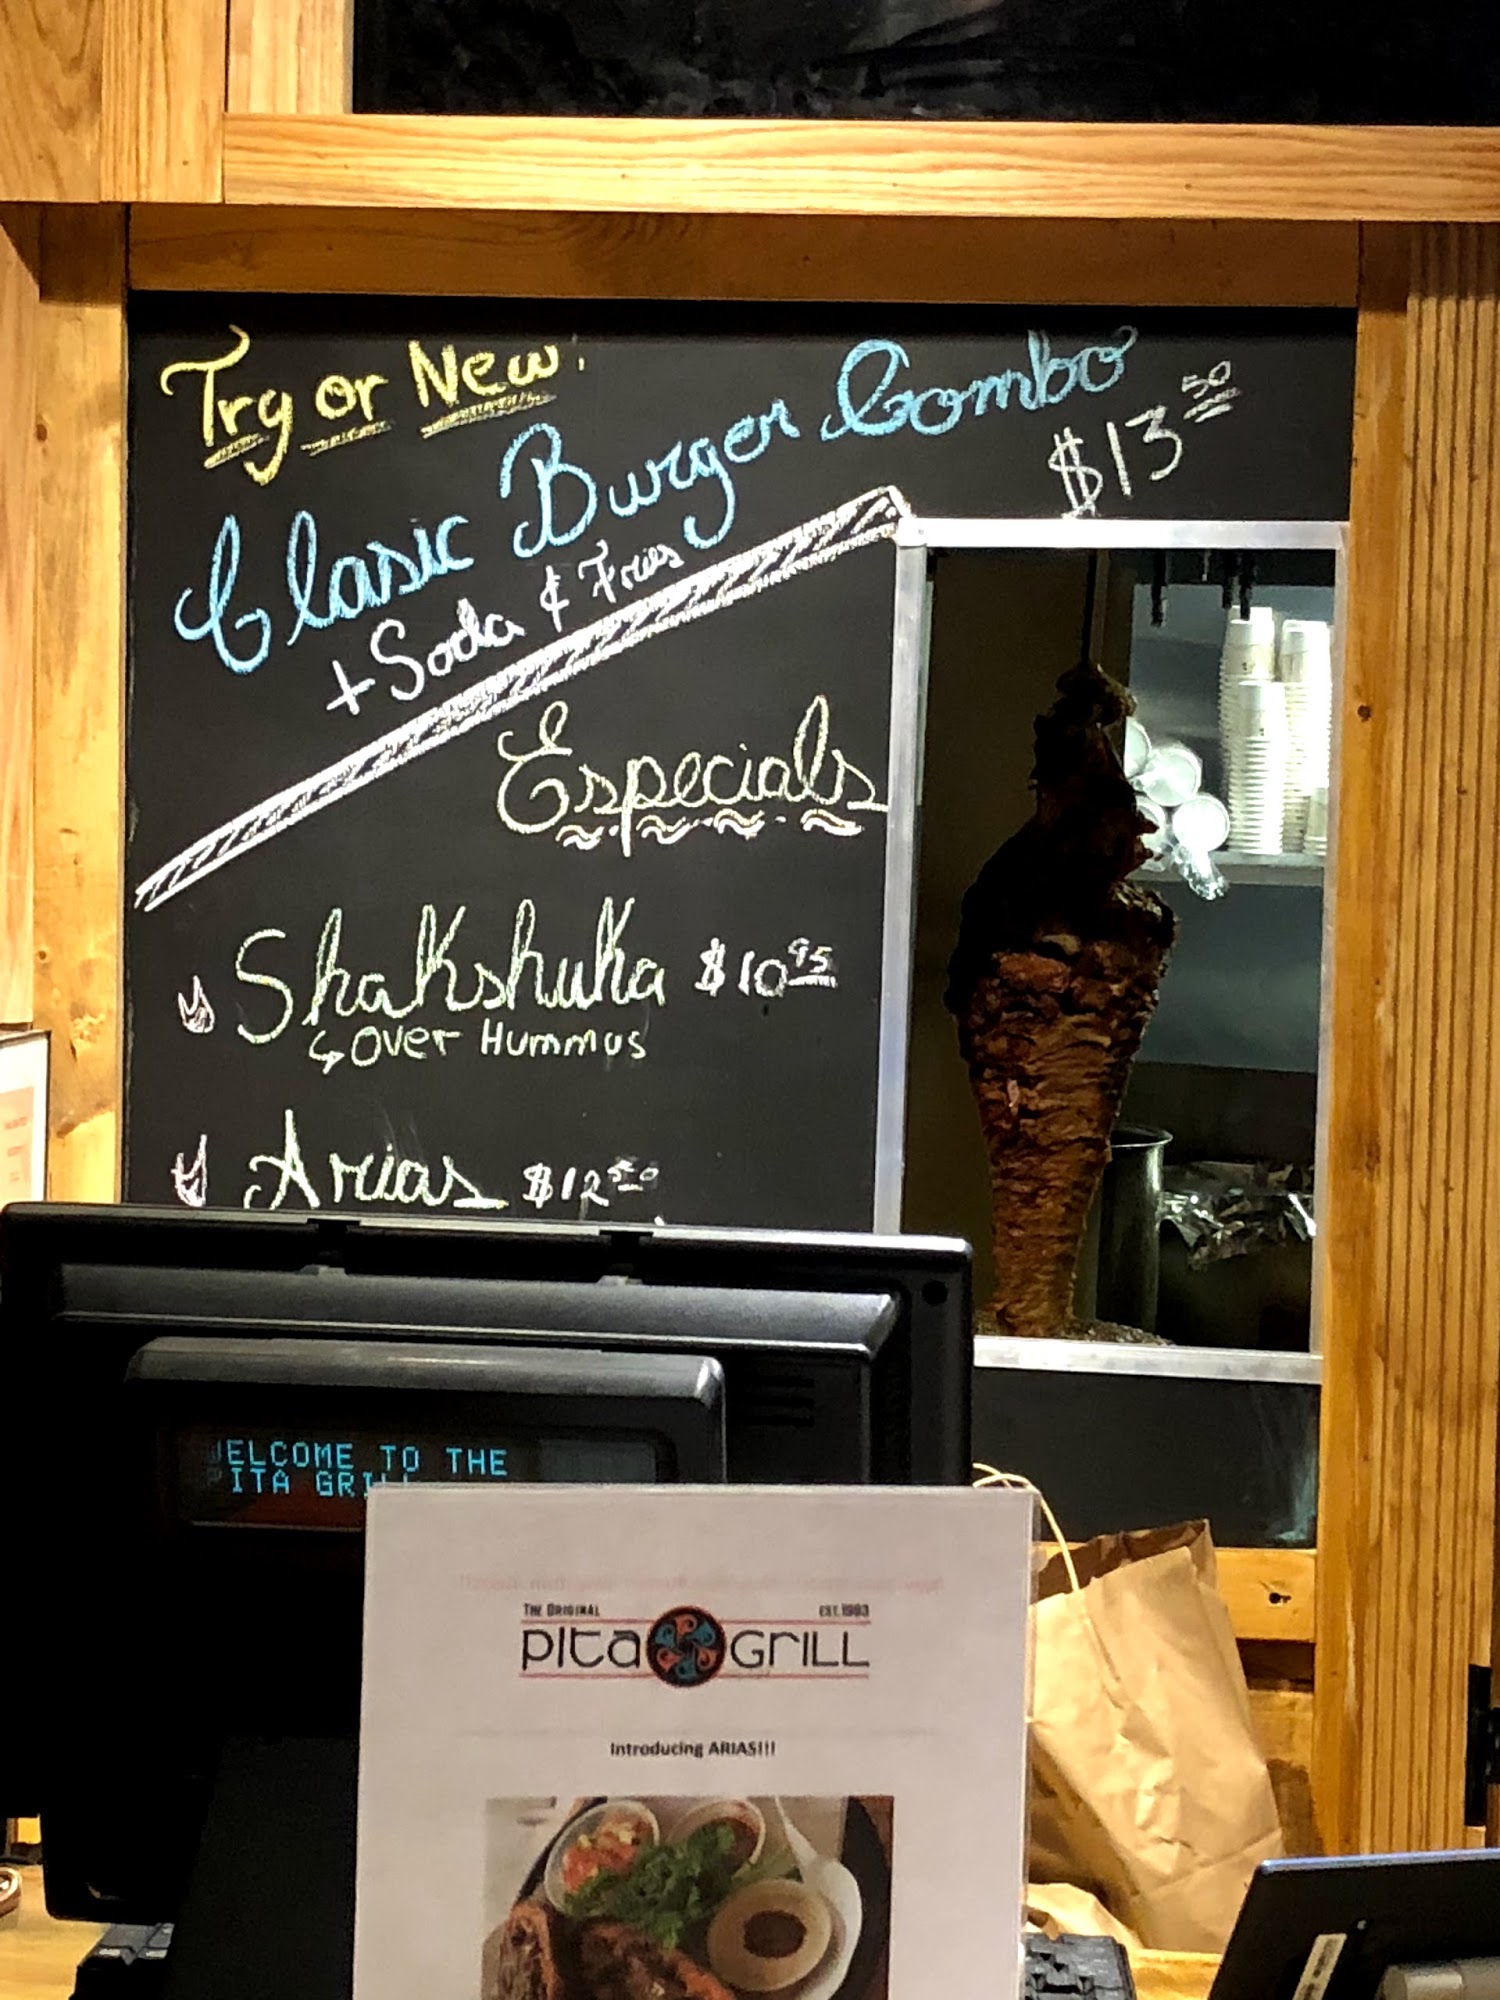 Try or New.
Clasic Burger Combo
$13.50
+ Soda & Fries
Especials
Shakshuka $10.95
↳ Over Hummus
Arias $12.50
WELCOME TO THE
PITA GRILL
THE ORIGINAL EST. 1993
PITA GRILL
Introducing ARIAS!!!